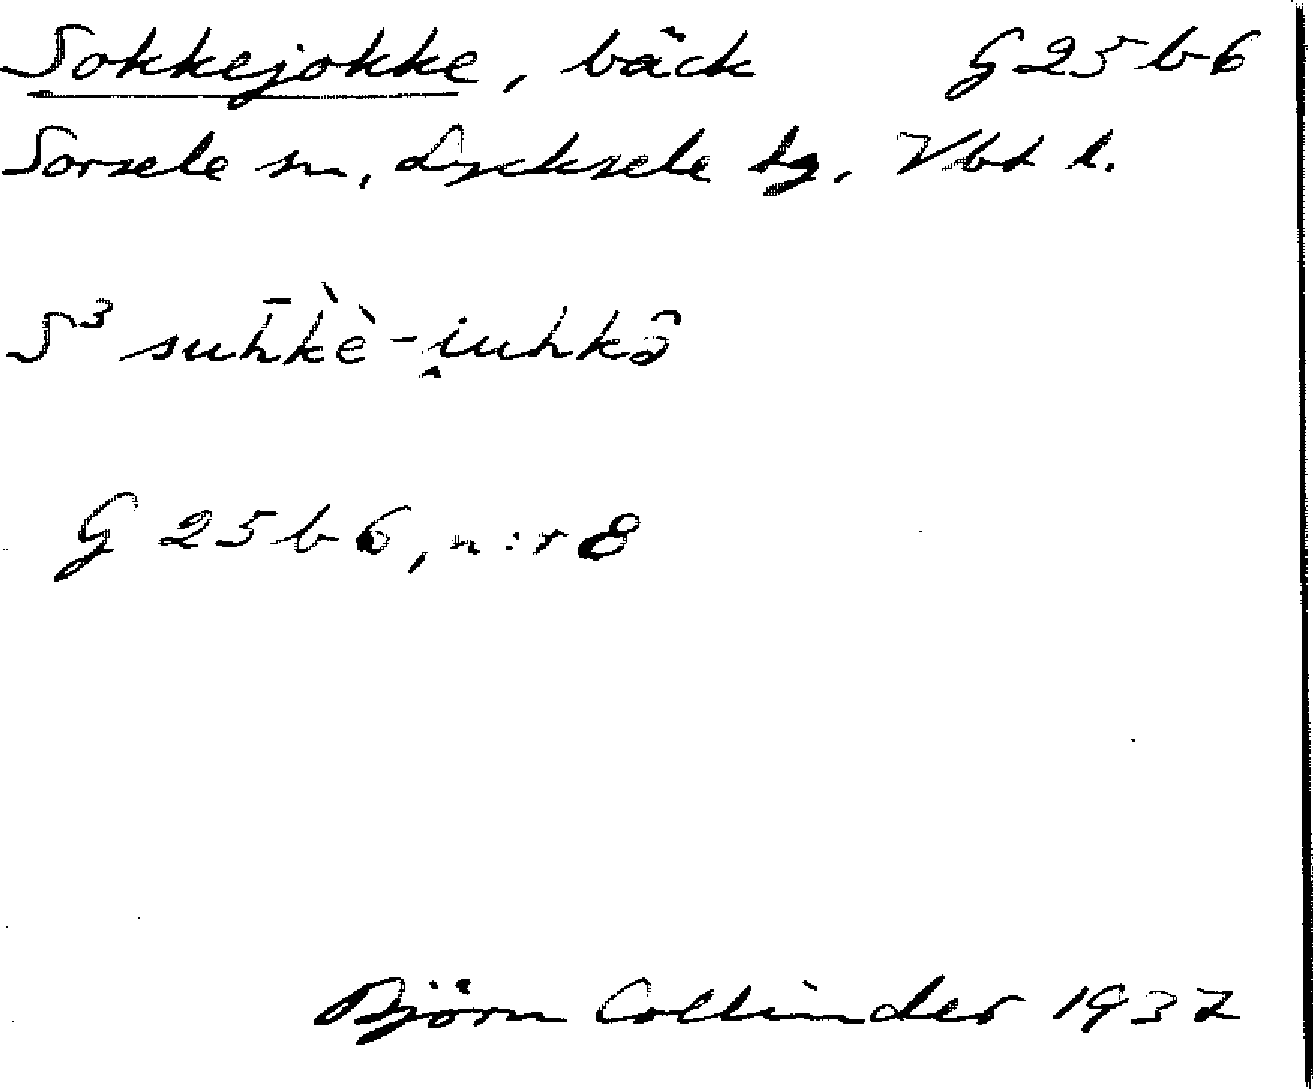 Sokkejokke, bäck G25b6
Sorsele sn, Lycksele tg, Vbt l.
S³ suh̄k̀è-i̯uhkə̂
G 25 b 6, n:r 8
Björn Collinder 1937